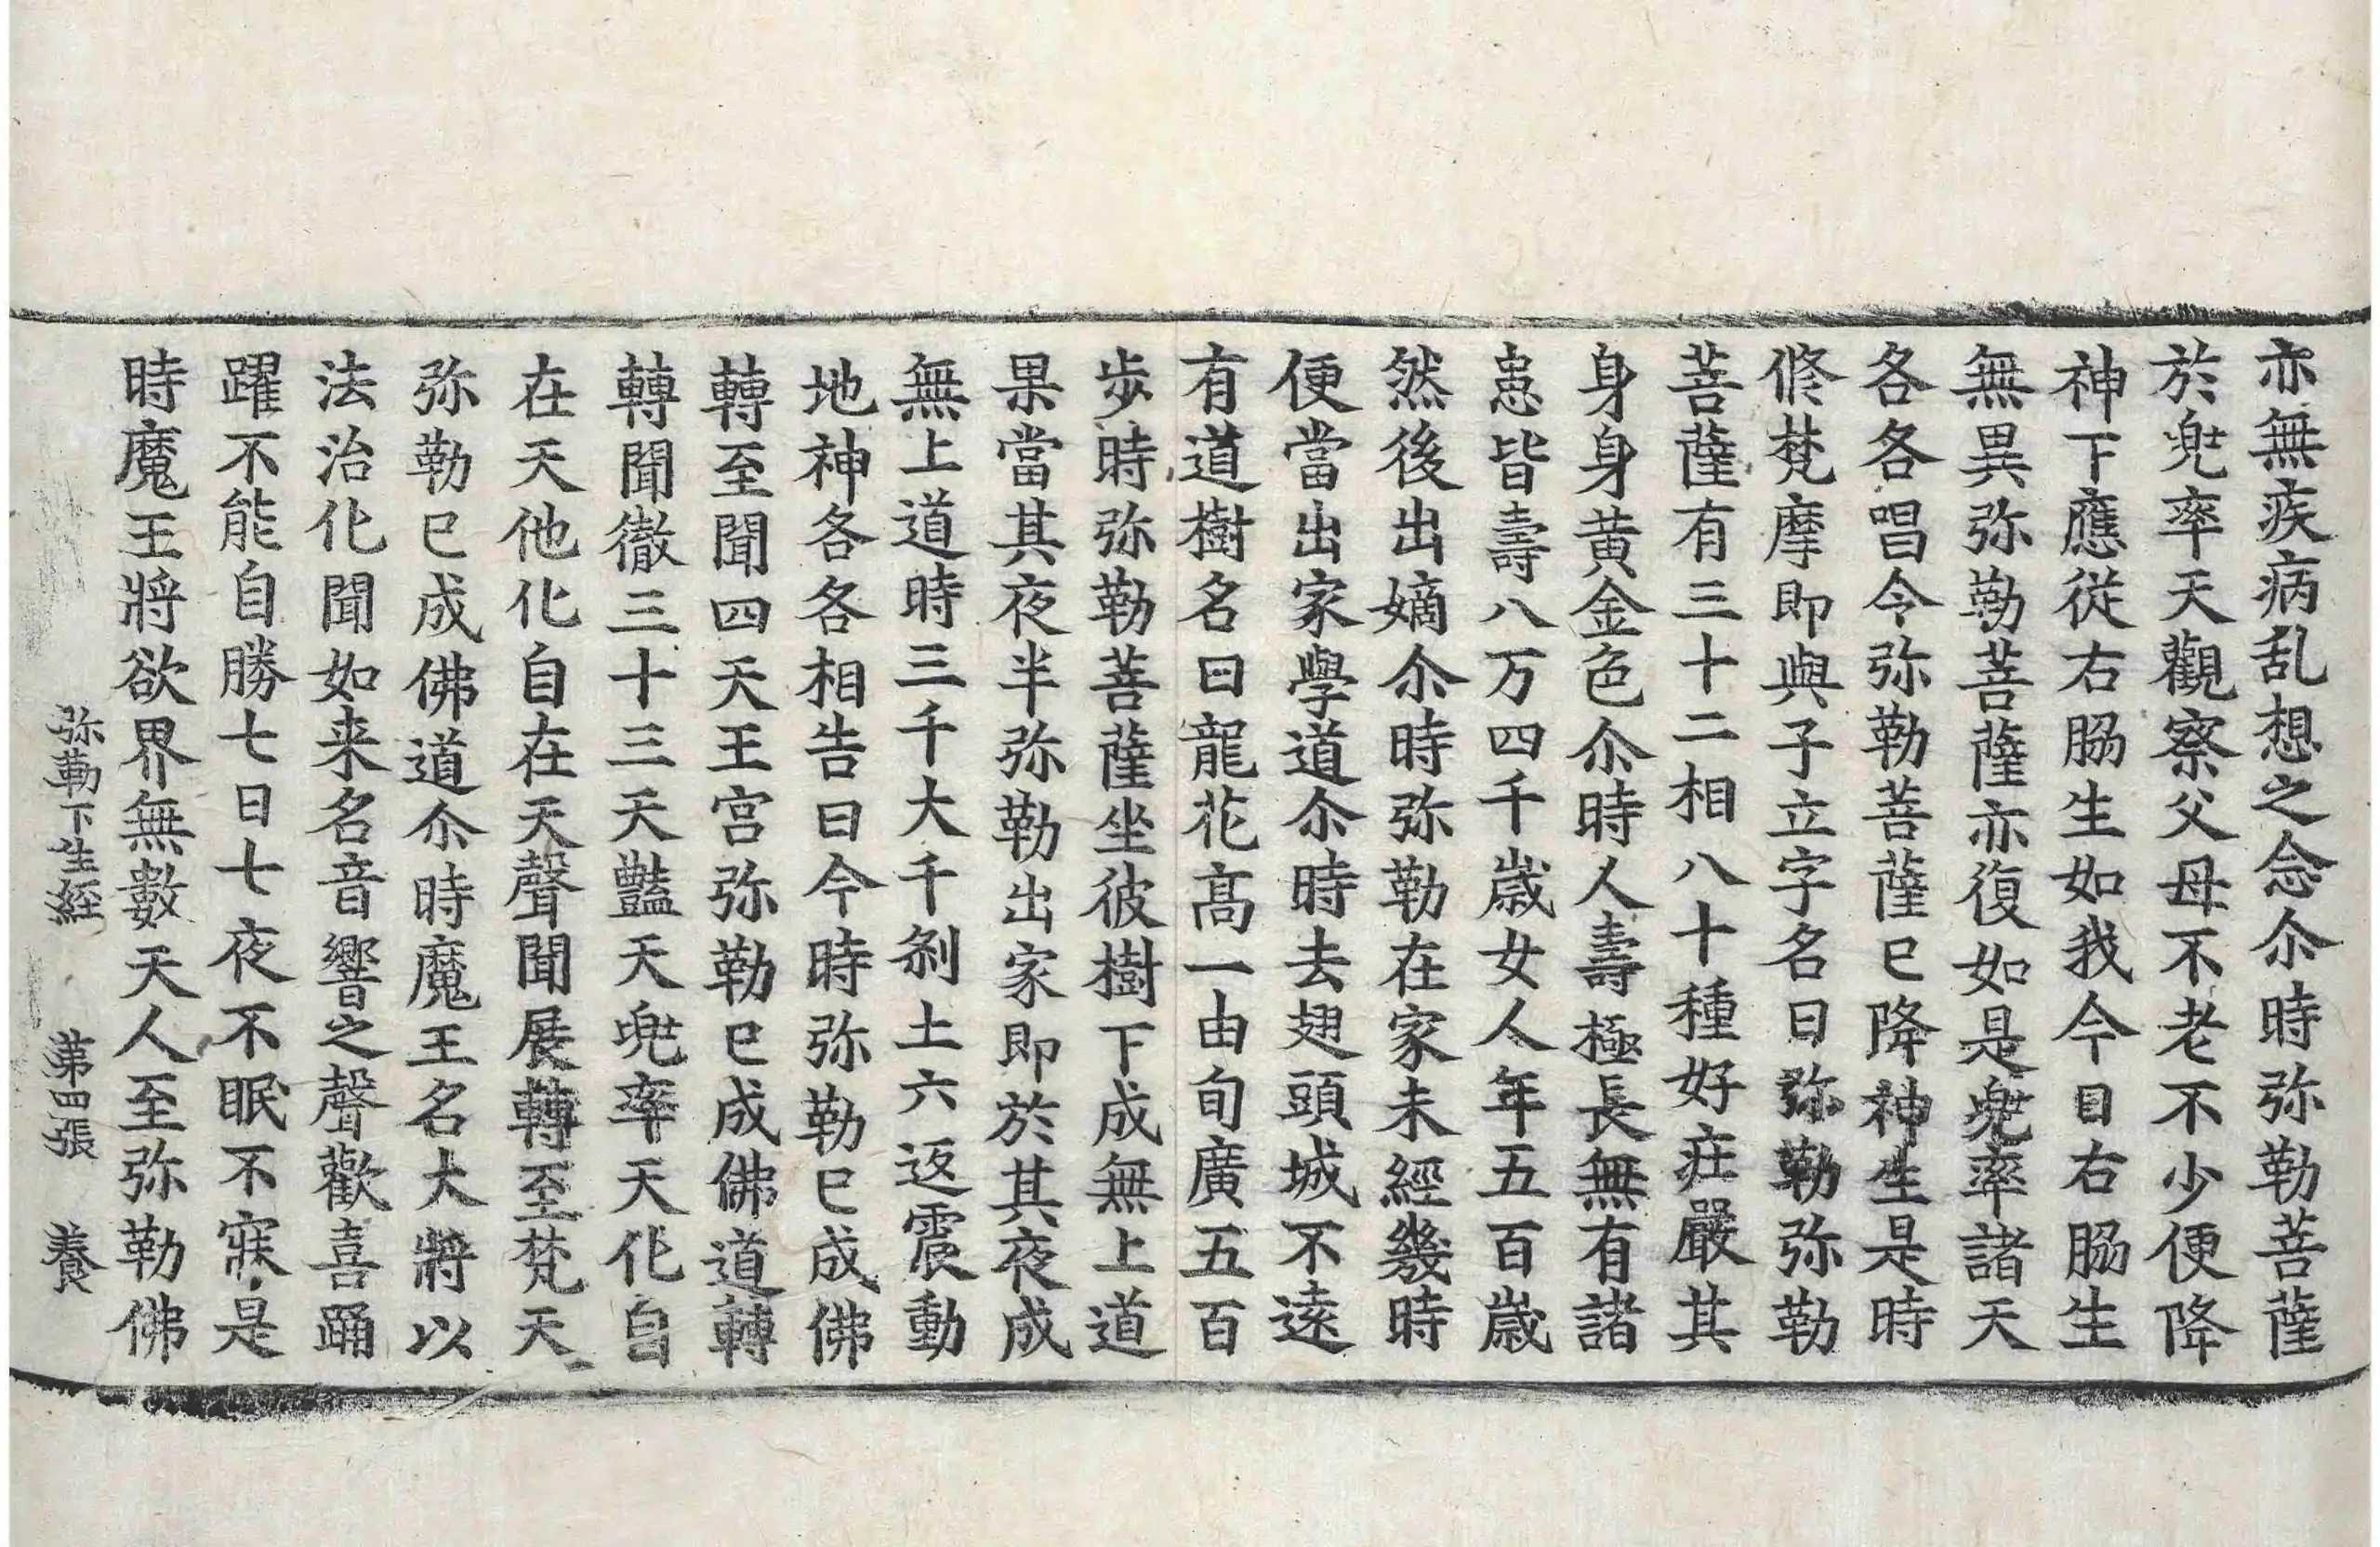 亦無疾病乱想之念尒時弥勒菩薩
於兜率天觀察父母不老不少便降
神下應從右脇生如我今日右脇生
無異弥勒菩薩亦復如是兜率諸天
各各唱令弥勒菩薩已降神生是時
修梵摩即與子立字名曰弥勒弥勒
菩薩有三十二相八十種好莊嚴其
身身黃金色尒時人壽極長無有諸
患皆壽八万四千歲女人年五百歲
然後出嫡尒時弥勒在家未經幾時
便當出家學道尒時去翅頭城不遠
有道樹名曰龍花高一由旬廣五百
步時弥勒菩薩坐彼樹下成無上道
果當其夜半弥勒出家即於其夜成
無上道時三千大千剎土六返震動
地神各各相告曰今時弥勒已成佛
轉至聞四天王宮弥勒已成佛道轉
轉聞徹三十三天豔天兜率天化自
在天他化自在天聲聞展轉至梵天
弥勒已成佛道尒時魔王名大將以
法治化聞如来名音響之聲歡喜踊
躍不能自勝七日七夜不眠不寐是
時魔王將欲界無數天人至弥勒佛
弥勒下生經 第四張 養